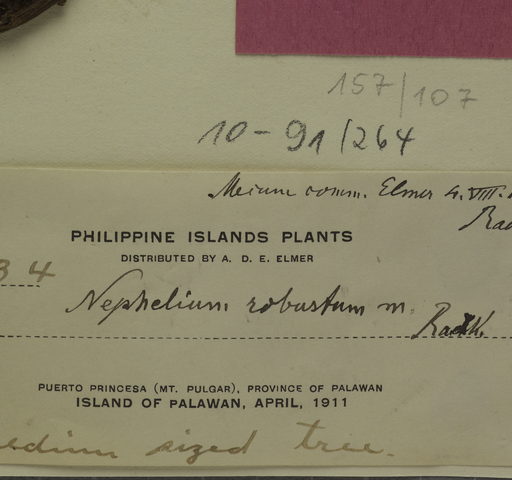 157/107
10-91/264
comm. Elmer 4.VIII.
PHILIPPINE ISLANDS PLANTS
DISTRIBUTED BY A. D. E. ELMER
34
Nephelium robustum m. Radlk.
PUERTO PRINCESA (MT. PULGAR), PROVINCE OF PALAWAN
ISLAND OF PALAWAN, APRIL, 1911
edium sized tree.